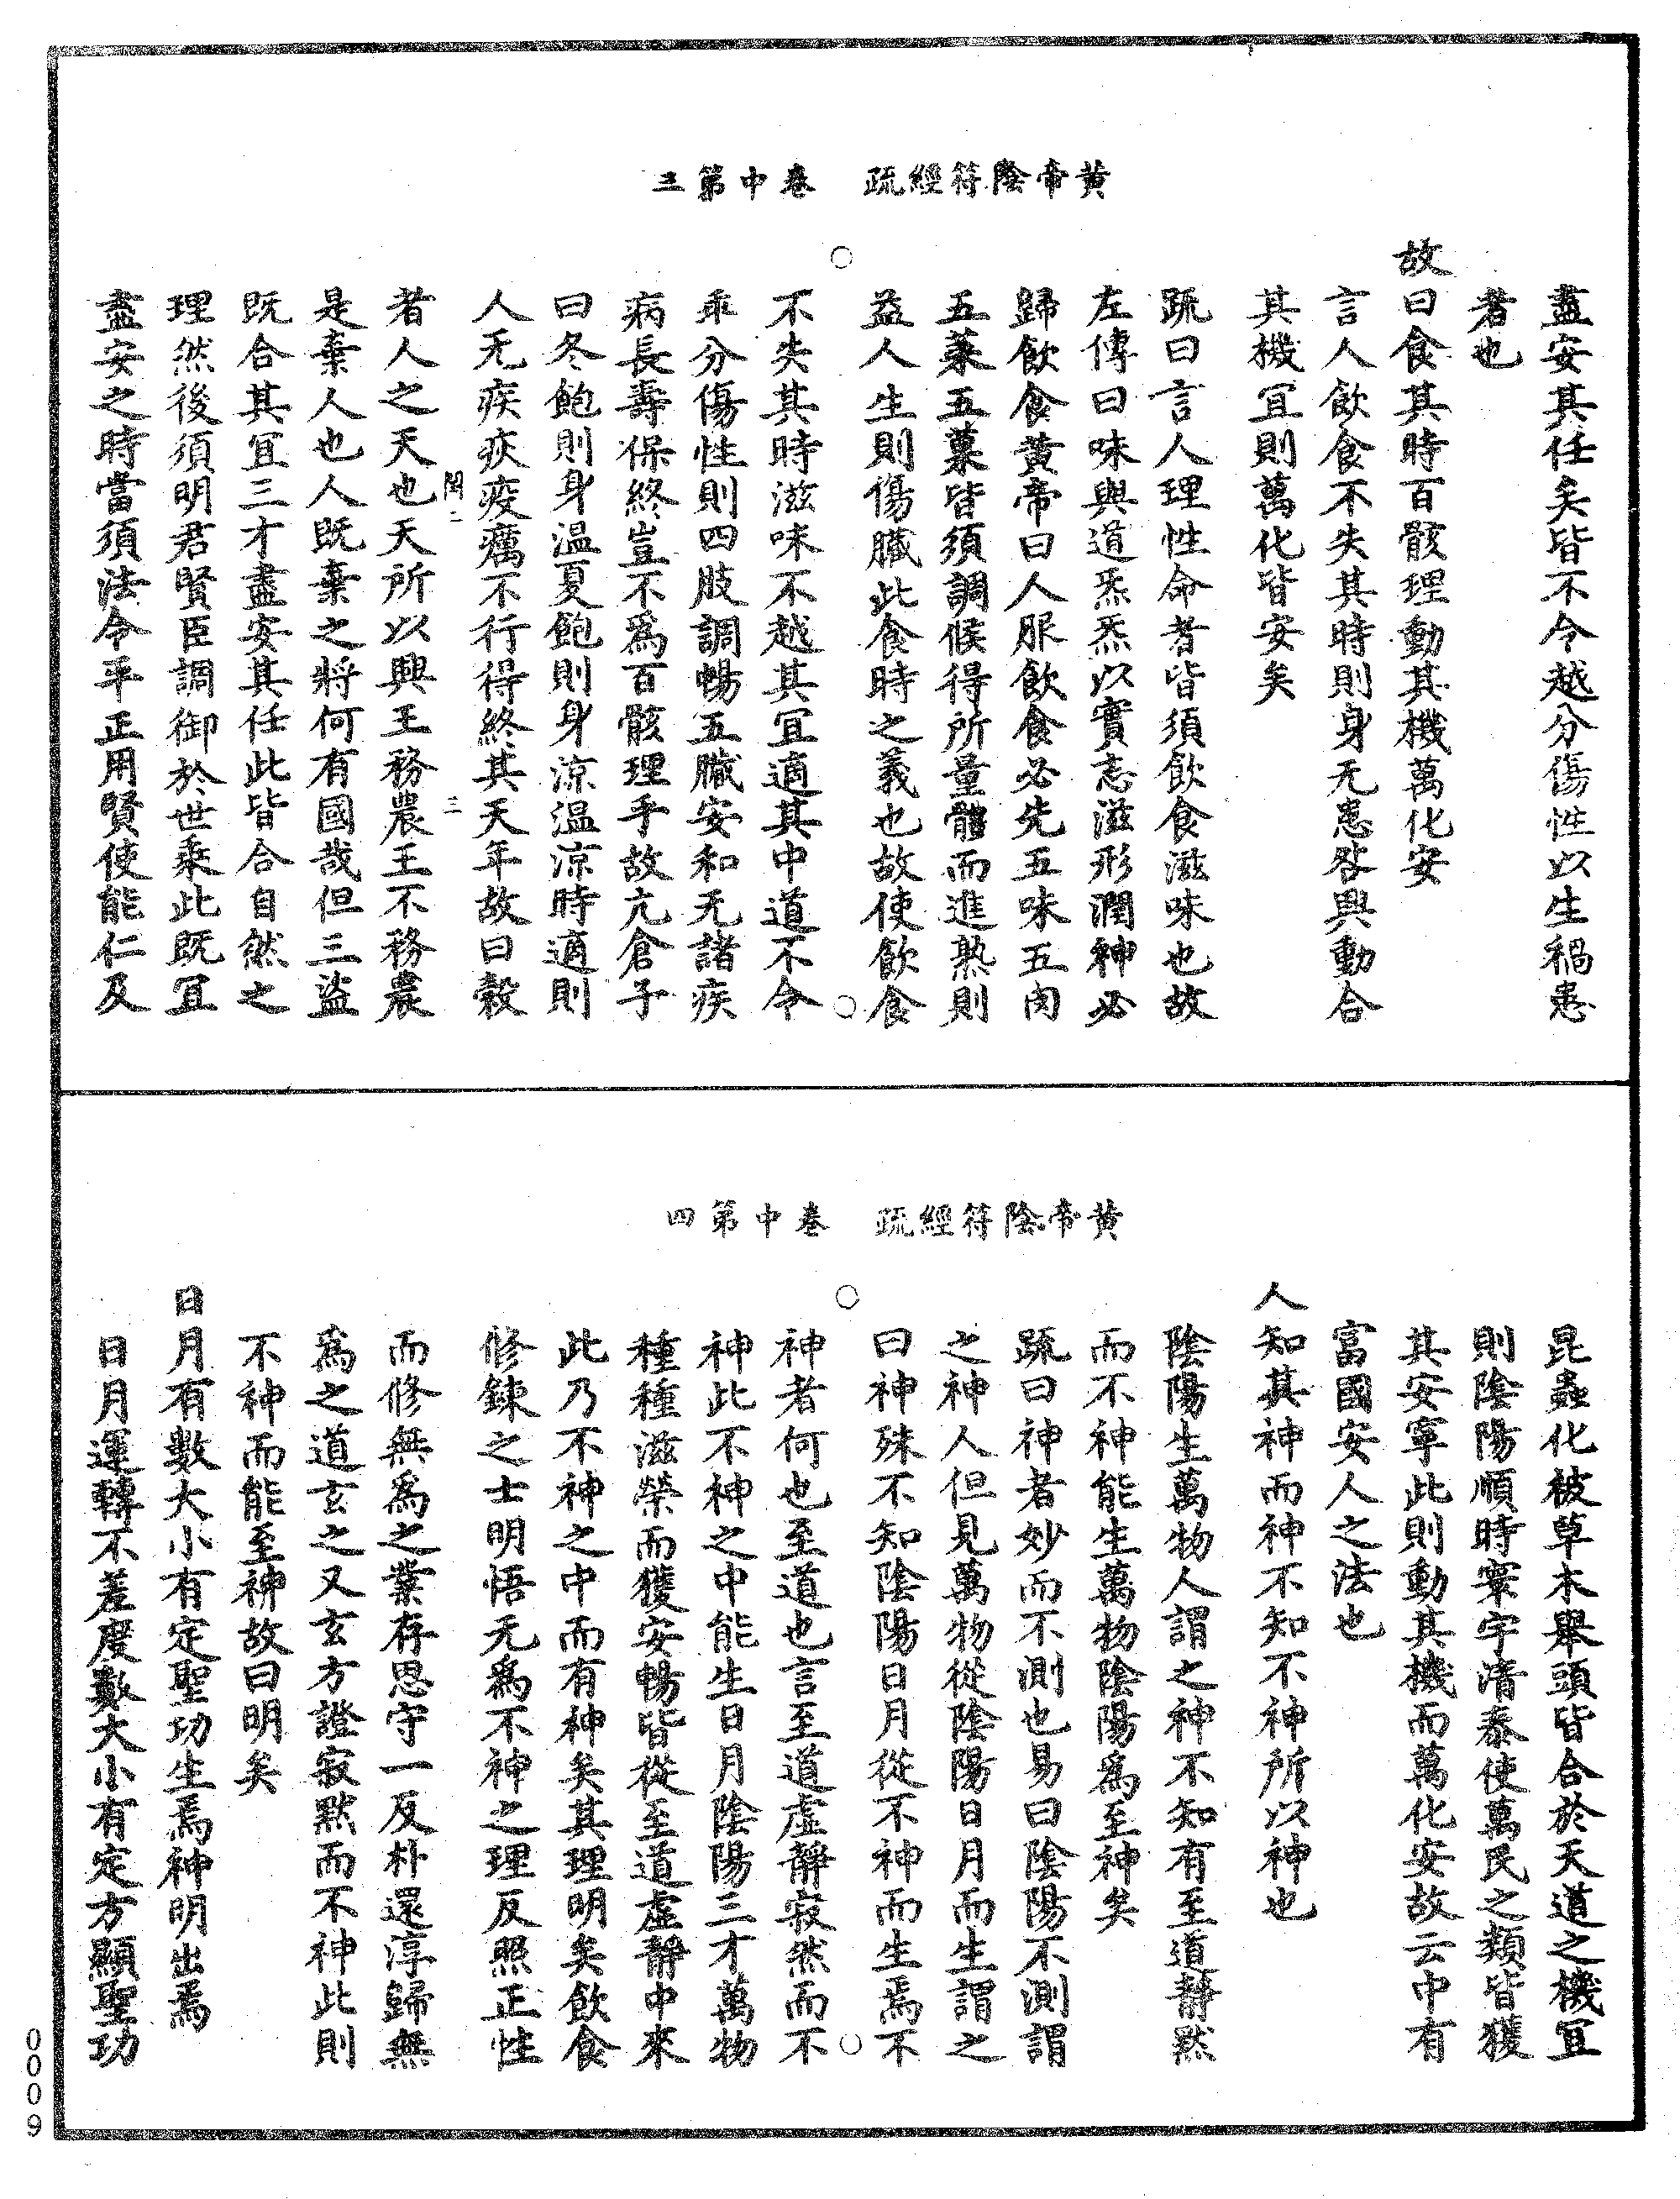 黃帝陰符經疏　卷中第三
盡安其任矣皆不令越分傷性以生禍患
者也
故曰食其時百骸理動其機萬化安
言人飲食不失其時則身无患咎興動合
其機宜則萬化皆安矣
疏曰言人理性命者皆須飲食滋味也故
左傳曰味與道炁炁以實志滋形潤神必
歸飲食黃帝曰人服飲食必先五味五肉
五菜五菓皆須調候得所量體而進熟則
益人生則傷臟此食時之義也故使飲食
不失其時滋味不越其宜適其中道不令
乖分傷性則四肢調暢五臟安和无諸疾
病長壽保終豈不爲百骸理乎故亢倉子
曰冬飽則身温夏飽則身涼温涼時適則
人无疾疢疫癘不行得終其天年故曰穀
閏二　三
者人之天也天所以興王務農王不務農
是棄人也人既棄之將何有國哉但三盜
既合其宜三才盡安其任此皆合自然之
理然後須明君賢臣調御於世乘此既宜
盡安之時當須法令平正用賢使能仁及
黃帝陰符經疏　卷中第四
昆蟲化被草木舉頭皆合於天道之機宜
則陰陽順時寰宇清泰使萬民之類皆獲
其安寧此則動其機而萬化安故云中有
富國安人之法也
人知其神而神不知不神所以神也
陰陽生萬物人謂之神不知有至道靜默
而不神能生萬物陰陽爲至神矣
疏曰神者妙而不測也易曰陰陽不測謂
之神人但見萬物從陰陽日月而生謂之
曰神殊不知陰陽日月從不神而生焉不
神者何也至道也言至道虛靜寂然而不
神此不神之中能生日月陰陽三才萬物
種種滋榮而獲安暢皆從至道虛靜中來
此乃不神之中而有神矣其理明矣飲食
修鍊之士明悟无爲不神之理反照正性
而修無爲之業存思守一反朴還淳歸無
爲之道玄之又玄方證寂默而不神此則
不神而能至神故曰明矣
日月有數大小有定聖功生焉神明出焉
日月運轉不差度數大小有定方顯聖功
0009